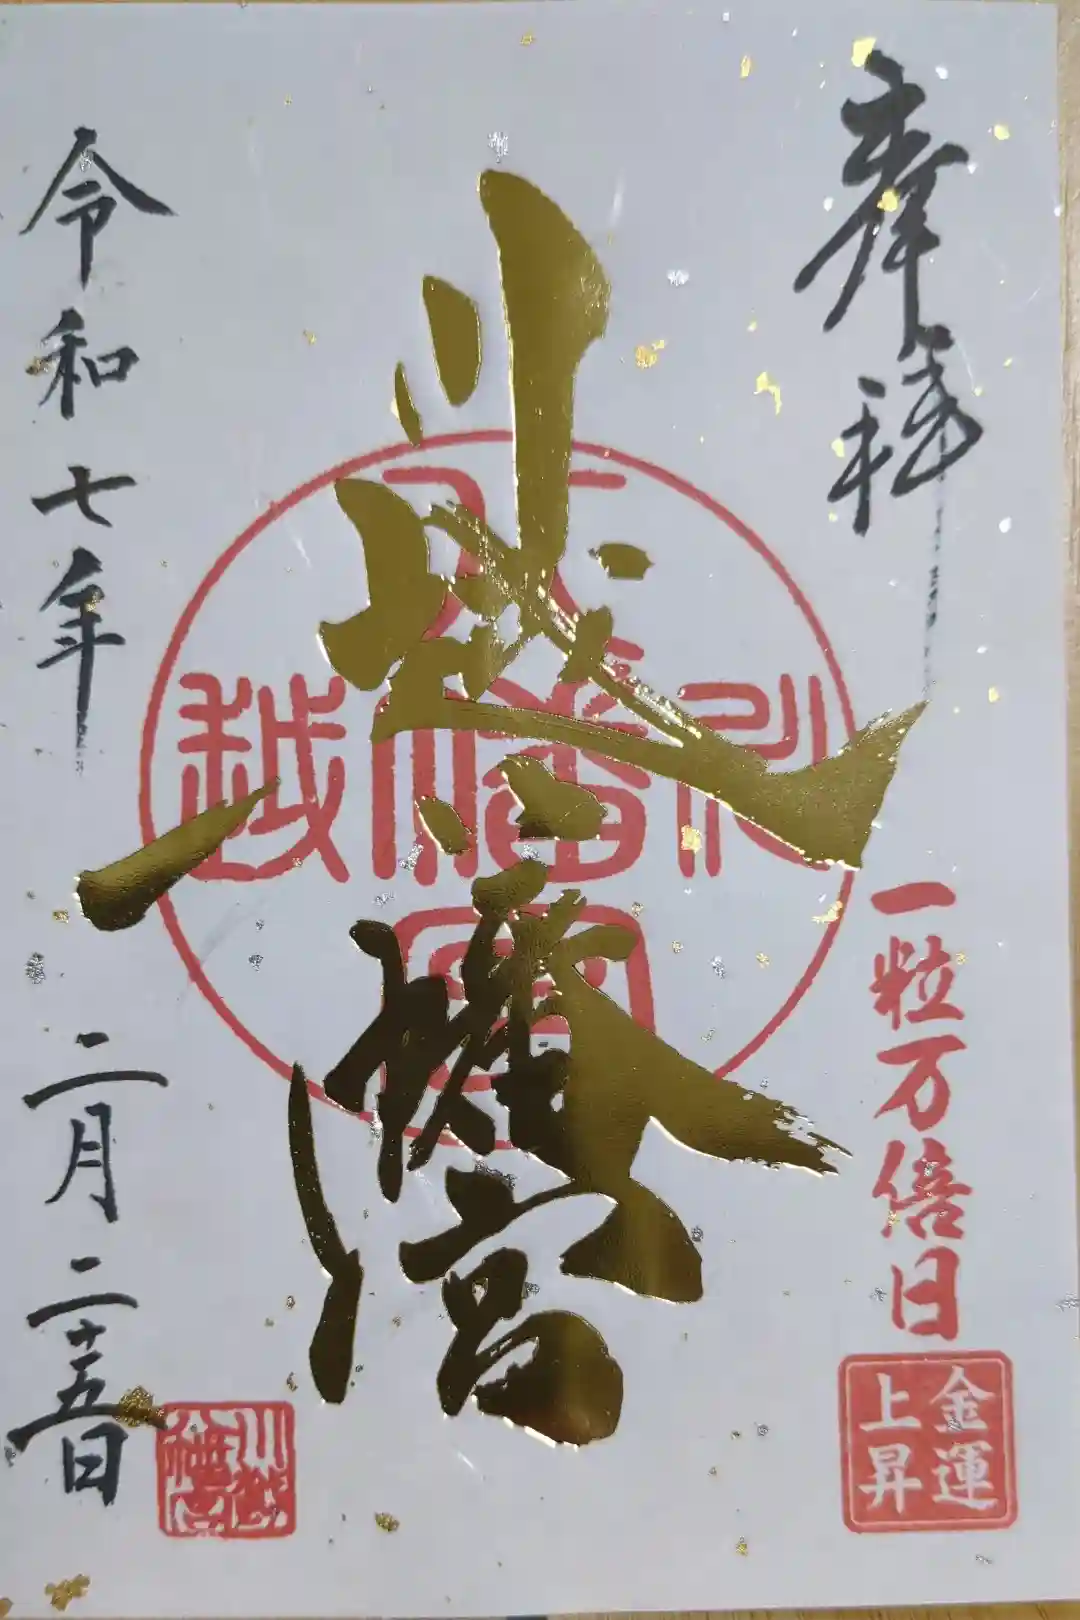 奉拝
一粒万倍日
金運
上昇
川越八幡宮
川越
八幡宮
令和七年 二月二十五日